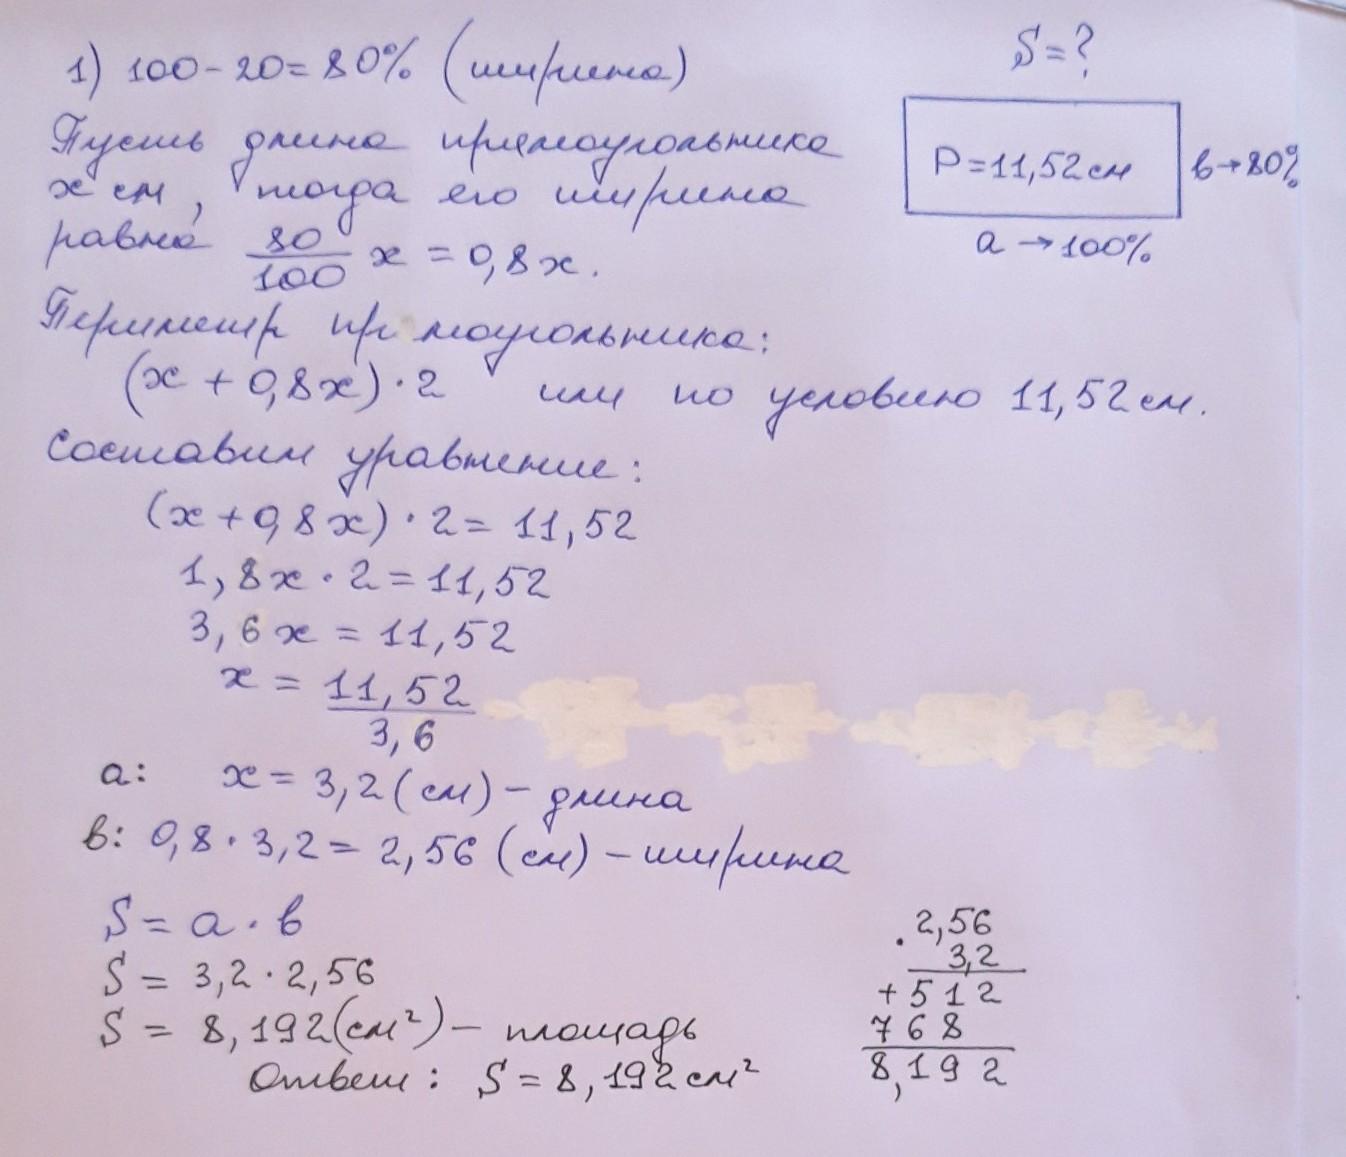 1) 100-20=80% (ширина)
S=?
P=11,52см
в→80%
a→100%
Пусть длина прямоугольника
x см, тогда его ширина
равна 80/100 x = 0,8x.
Периметр пр моугольника:
(x + 0,8x)·2 или по условию 11,52см.
Составим уравнение:
(x+0,8x)·2=11,52
1,8x·2=11,52
3,6x=11,52
x = 11,52/3,6
a: x=3,2(см)-длина
в: 0,8·3,2=2,56(см)-ширина
S=a·в
S=3,2·2,56
S=8,192(см²)-площадь
Ответ: S=8,192см²
.2,56
3,2
+512
768
8,192